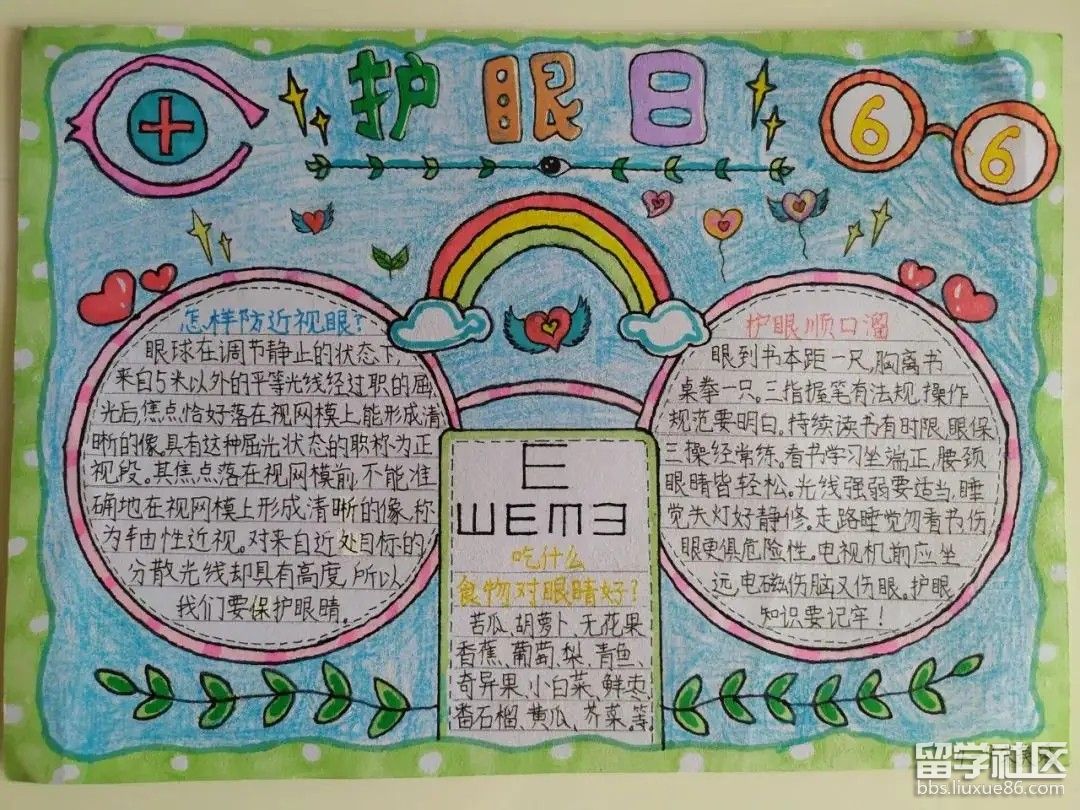 护眼日
6
6
怎样防近视眼?
眼球在调节静止的状态下,
来自5米以外的平等光线经过职的屈
光后,焦点恰好落在视网模上,能形成清
晰的像。具有这种屈光状态的职称为正
视段。其焦点落在视网模前,不能准
确地在视网模上形成清晰的像,称
为由性近视。对来自近处目标的
分散光线却具有高度,所以
我们要保护眼睛。
E
ШEmƎ
吃什么
食物对眼睛好?
苦瓜、胡萝卜、无花果
香蕉、葡萄、梨、青鱼、
奇异果、小白菜、鲜枣、
番石榴、黄瓜、芥菜、等
护眼顺口溜
眼到书本距一尺,胸离书
桌拳一只。三指握笔有法规,操作
规范要明白。持续读书有时限,眼保
三操经常练。看书学习坐端正,腰颈
眼睛皆轻松。光线强弱要适当,睡
觉失灯好静修。走路睡觉勿看书伤
眼更俱危险性。电视机前应坐
远,电磁伤脑又伤眼。护眼
知识要记牢!
留学社区
bbs.liuxue86.com